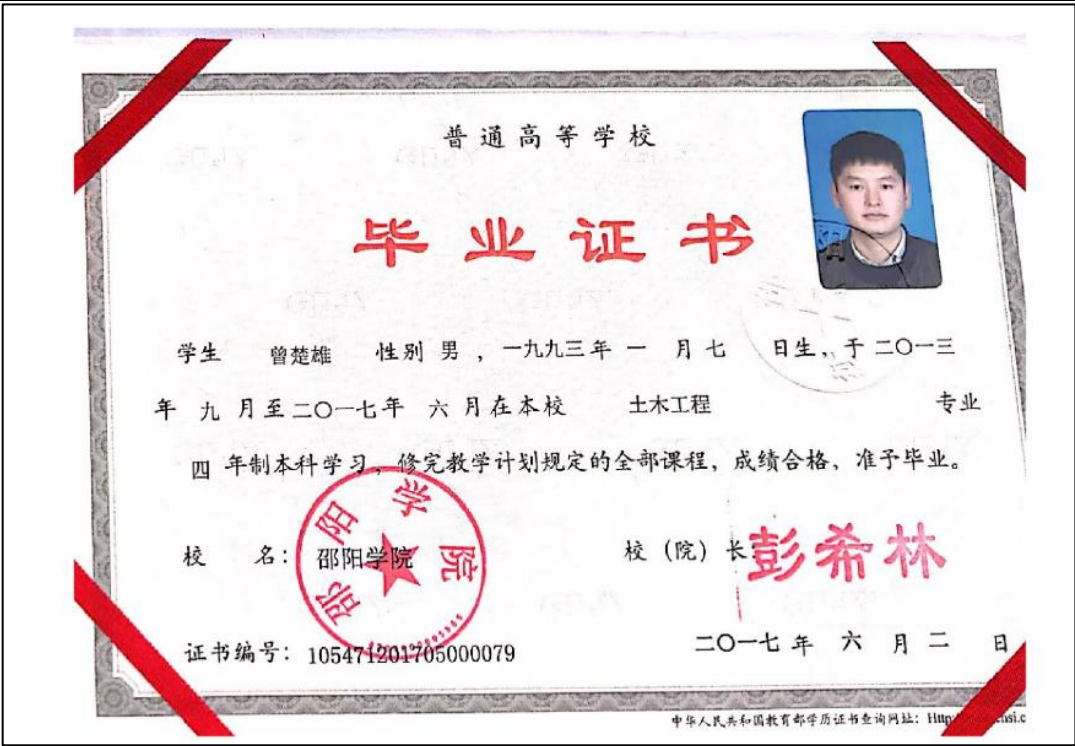 普通高等学校
毕业证书
学生 曾楚雄 性别 男 ，一九九三年 一 月 七 日生，于 二〇一三
年 九 月至 二〇一七年 六 月在本校 土木工程 专业
四 年制本科学习，修完教学计划规定的全部课程，成绩合格，准予毕业。
邵阳学院
校 名： 邵阳学院 校（院）长： 彭希林
证书编号： 105471201705000079 二〇一七 年 六 月 二 日
中华人民共和国教育部学历证书查询网址：